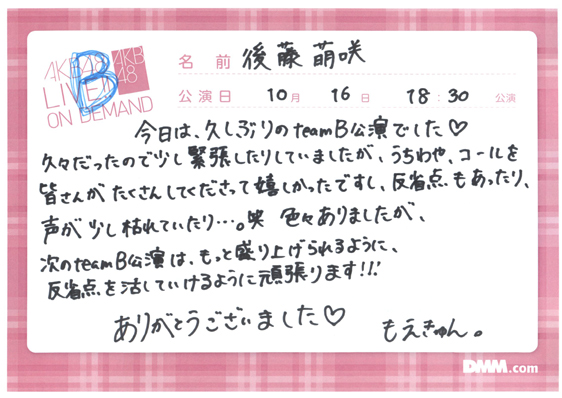 AKB48
LIVE!!
ON DEMAND
AKB
48
B
名前 後藤 萌咲
公演日 10月 16日 18:30 公演
今日は、久しぶりのteamB公演でした♡
久々だったので少し緊張したりしていましたが、うちわや、コールを
皆さんがたくさんしてくださって嬉しかったですし、反省点もあったり、
声が少し枯れていたり…。笑 色々ありましたが、
次のteamB公演は、もっと盛り上げられるように、
反省点を活していけるように頑張ります!!!
ありがとうございました♡
もえきゅん。
DMM.com